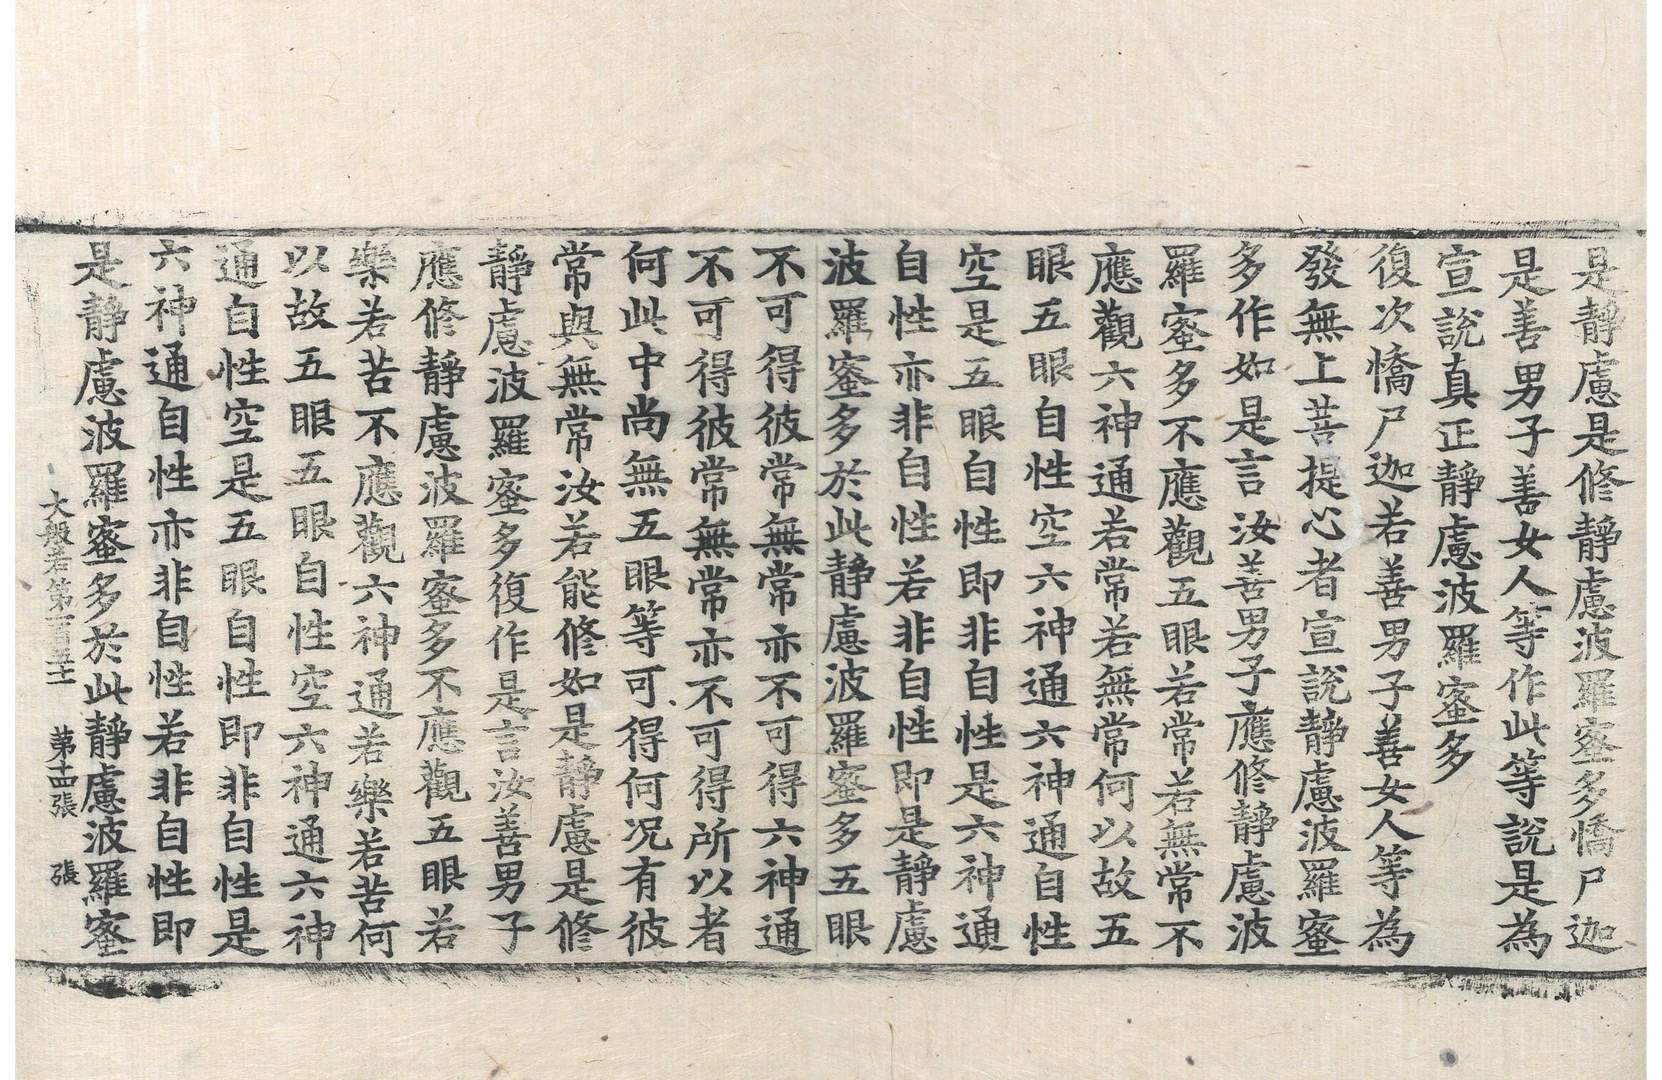 是靜慮是修靜慮波羅蜜多憍尸迦
是善男子善女人等作此等說是為
宣說真正靜慮波羅蜜多
復次憍尸迦若善男子善女人等為
發無上菩提心者宣說靜慮波羅蜜
多作如是言汝善男子應修靜慮波
羅蜜多不應觀五眼若常若無常不
應觀六神通若常若無常何以故五
眼五眼自性空六神通六神通自性
空是五眼自性即非自性是六神通
自性亦非自性若非自性即是靜慮
波羅蜜多於此靜慮波羅蜜多五眼
不可得彼常無常亦不可得六神通
不可得彼常無常亦不可得所以者
何此中尚無五眼等可得何況有彼
常與無常汝若能修如是靜慮是修
靜慮波羅蜜多復作是言汝善男子
應修靜慮波羅蜜多不應觀五眼若
樂若苦不應觀六神通若樂若苦何
以故五眼五眼自性空六神通六神
通自性空是五眼自性即非自性是
六神通自性亦非自性若非自性即
是靜慮波羅蜜多於此靜慮波羅蜜
大般若第一百五十 第十四張 張